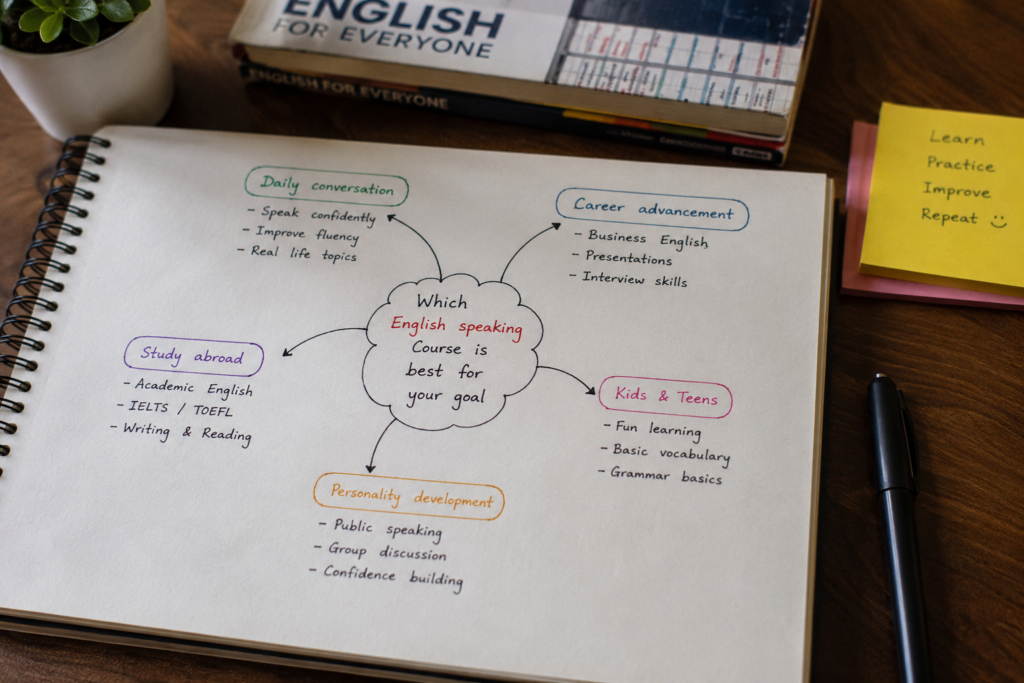 ENGLISH
FOR EVERYONE
ENGLISH FOR EVERYONE
Learn
Practice
Improve
Repeat
Daily conversation
- Speak confidently
- Improve fluency
- Real life topics
Career advancement
- Business English
- Presentations
- Interview skills
Which
English speaking
Course is
best for
your goal
Study abroad
- Academic English
- IELTS / TOEFL
- Writing & Reading
Kids & Teens
- Fun learning
- Basic vocabulary
- Grammar basics
Personality development
- Public speaking
- Group discussion
- Confidence building